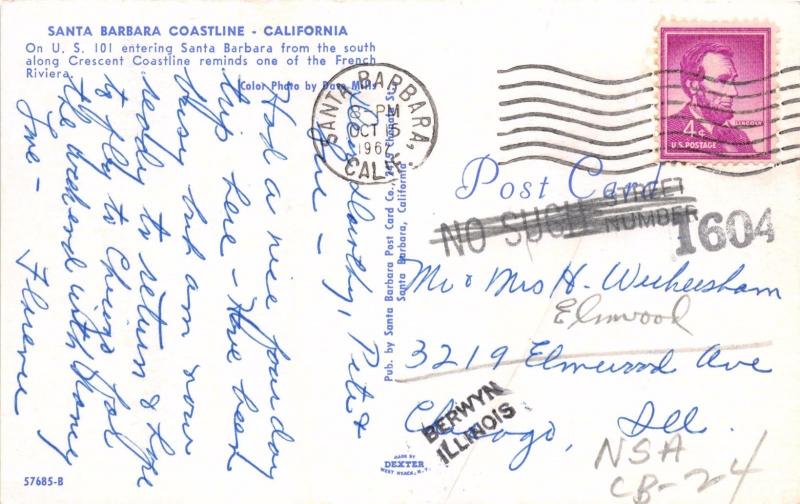 SANTA BARBARA COASTLINE - CALIFORNIA
On U. S. 101 entering Santa Barbara from the south
along Crescent Coastline reminds one of the French
Riviera.
Color Photo by Dave Mills
Dorothy, Pete &
Sue -
Had a nice four day
trip here - Have been
busy but am now
ready to return & hope
to fly to Chicago for
the weekend with Harry
Love -
Florence
57685-B
Pub. by Santa Barbara Post Card Co., Chapala St.
Santa Barbara, California
MADE BY
DEXTER
WEST NYACK, N.Y.
SANTA BARBARA,
PM
OCT 5
196
CALIF.
4¢
LINCOLN
U.S. POSTAGE
Post Card
NO SUCH STREET
NUMBER
1604
Mr & Mrs H.
Elmwood
3219 Elmwood Ave
Chicago, Ill.
BERWYN
ILLINOIS
NSA
CB-24